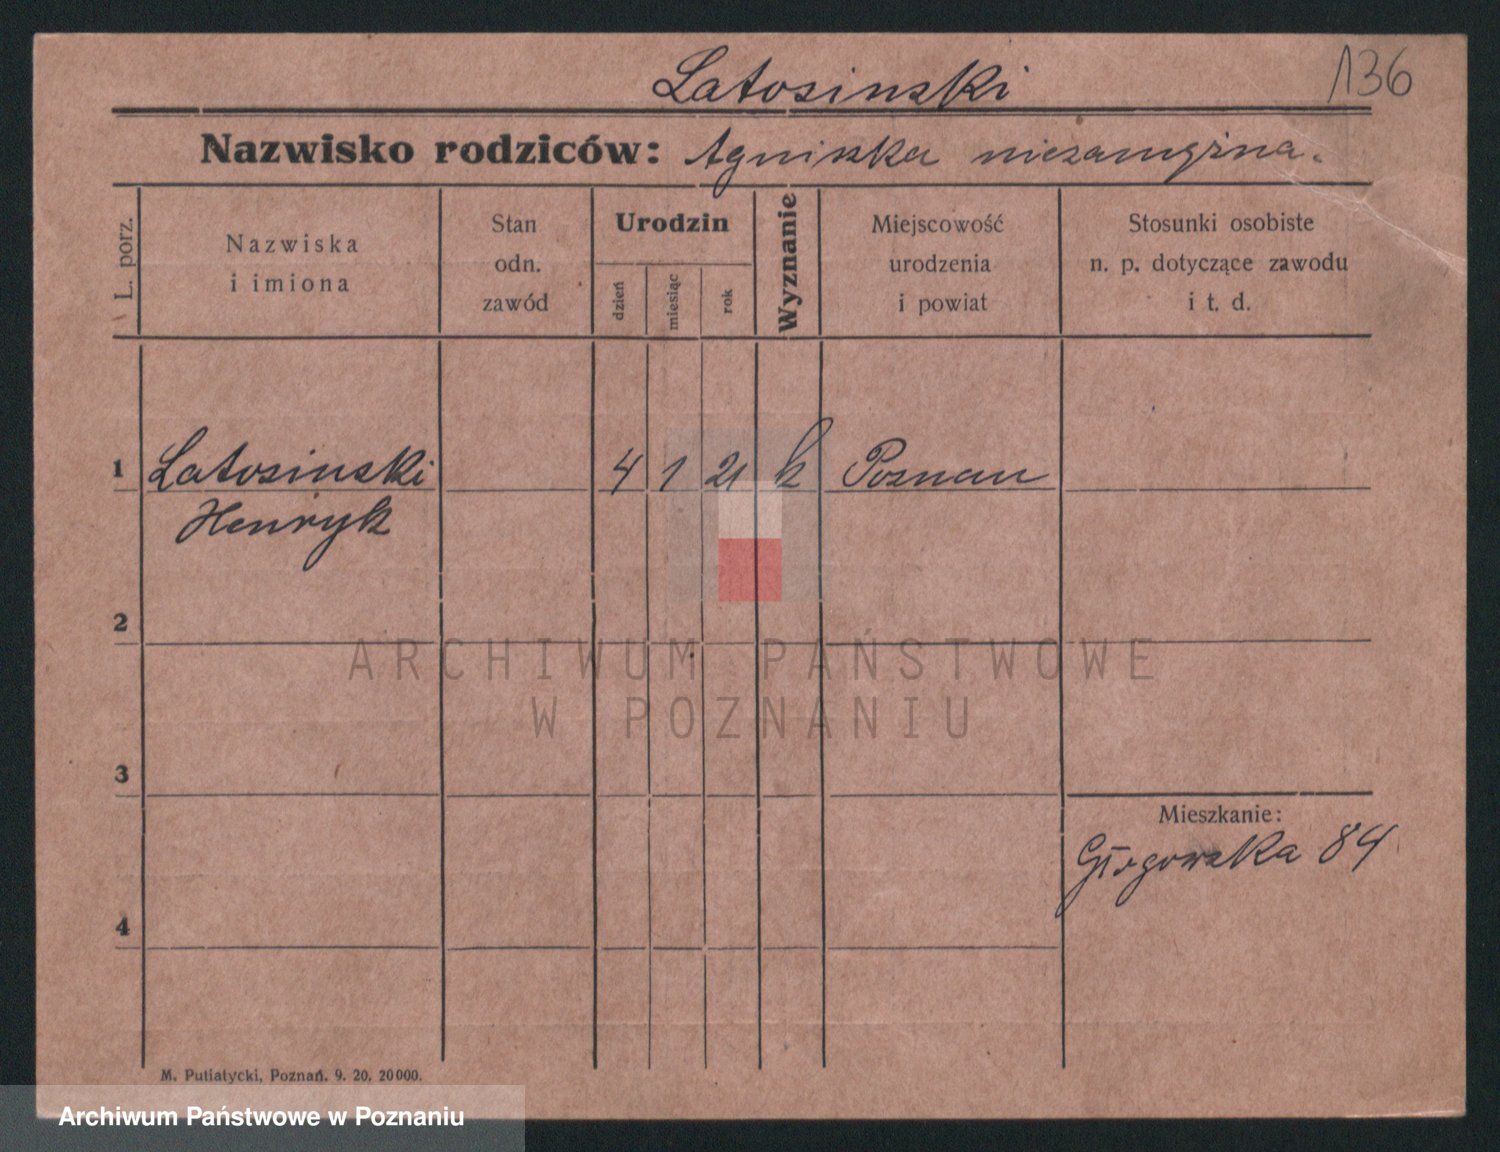 Latosinski
136
Nazwisko rodziców: Agniszka niezamężna.
L. porz.
Nazwiska
i imiona
Stan
odn.
zawód
Urodzin
dzień
miesiąc
rok
Wyznanie
Miejscowość
urodzenia
i powiat
Stosunki osobiste
n. p. dotyczące zawodu
i t. d.
1 Latosinski 4 1 21 k Poznan
Henryk
2
ARCHIWUM PAŃSTWOWE
W POZNANIU
3
Mieszkanie:
84
4
M. Putiatycki, Poznań. 9. 20. 20000.
Archiwum Państwowe w Poznaniu